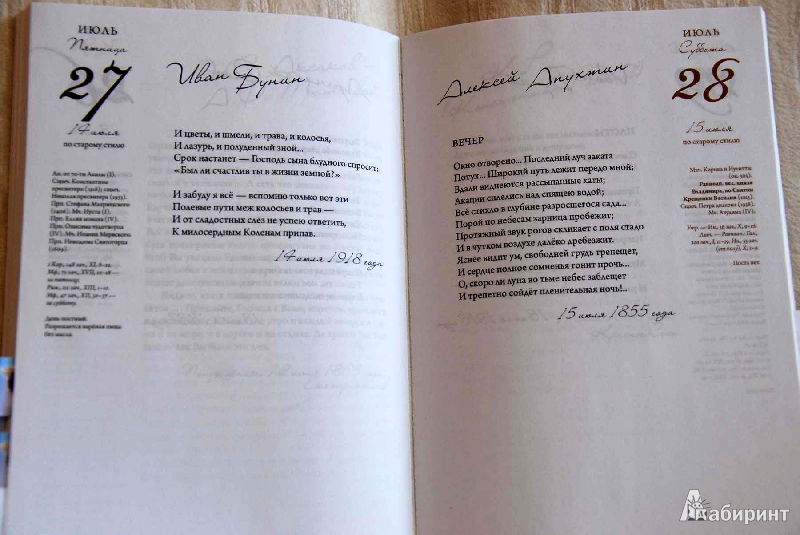 ИЮЛЬ
Пятница
27
14 июля
по старому стилю
Ап. от 70-ти Акилы (I).
Сщмч. Константина
пресвитера (1918); сщмч.
Николая пресвитера (1923).
Прп. Стефана Махрищского
(1406). Мч. Иуста (I).
Прп. Еллия монаха (IV).
Прп. Онисима чудотворца
(IV). Мч. Иоанна Мервского.
Прп. Никодима Святогорца
(1809).
1 Кор., 148 зач., XI, 8–22.
Мф., 71 зач., XVII, 10–18 —
за пятницу.
Рим.
за субботу.
День постный.
Разрешается варёная пища
без масла.
Иван Бунин
И цветы, и шмели, и трава, и колосья,
И лазурь, и полуденный зной...
Срок настанет — Господь сына блудного спросит:
«Был ли счастлив ты в жизни земной?»
И забуду я всё — вспомню только вот эти
Полевые пути меж колосьев и трав —
И от сладостных слёз не успею ответить,
К милосердным Коленам припав.
14 июля 1918 года
ИЮЛЬ
Суббота
28
15 июля
по старому стилю
Мчч. Кирика и Иулитты
(ок. 305).
Равноап. вел. князя
Владимира, во Святом
Крещении Василия (1015).
Сщмч. Петра диакона (1938).
Мч. Авудима (IV).
Поста нет.
Алексей Апухтин
ВЕЧЕР
Окно отворено... Последний луч заката
Потух... Широкий путь лежит передо мной;
Вдали виднеются рассыпанные хаты;
Акации сплелись над спящею водой;
Всё стихло в глубине разросшегося сада...
Порой по небесам зарница пробежит;
Протяжный звук рогов скликает с поля стадо
И в чутком воздухе далёко дребезжит.
Яснее видит ум, свободней грудь трепещет,
И сердце полное сомненья гонит прочь...
О, скоро ли луна во тьме небес заблещет
И трепетно сойдёт пленительная ночь!..
15 июля 1855 года
Лабиринт